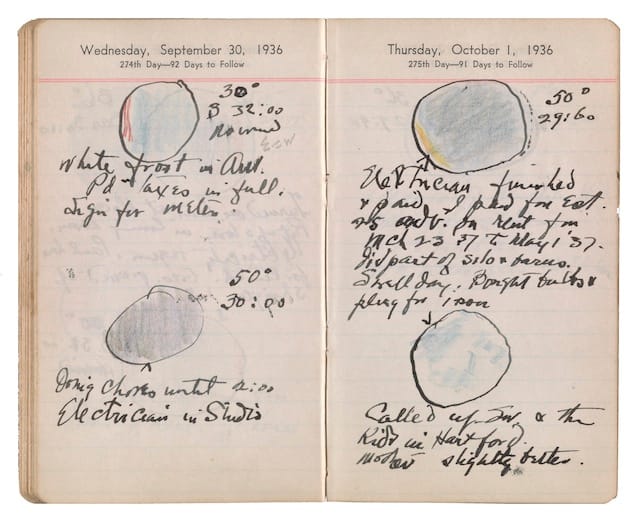 Wednesday, September 30, 1936
274th Day—92 Days to Follow
30°
B 32:00
no wind
white frost in AM.
Pd taxes in full.
Sign for meter.
50°
30:00
Doing chores until 2:00
Electrician in Studio
Thursday, October 1, 1936
275th Day—91 Days to Follow
50°
29:60
Electrician finished
& paid. I paid for Est.
25 adv. on rent for
Mch 23 37 to May 1 '37.
Did part of silo & barns.
Swell day. Bought bulbs &
plug for iron
Called up & the
Kids in Hartford.
Mother slightly better.